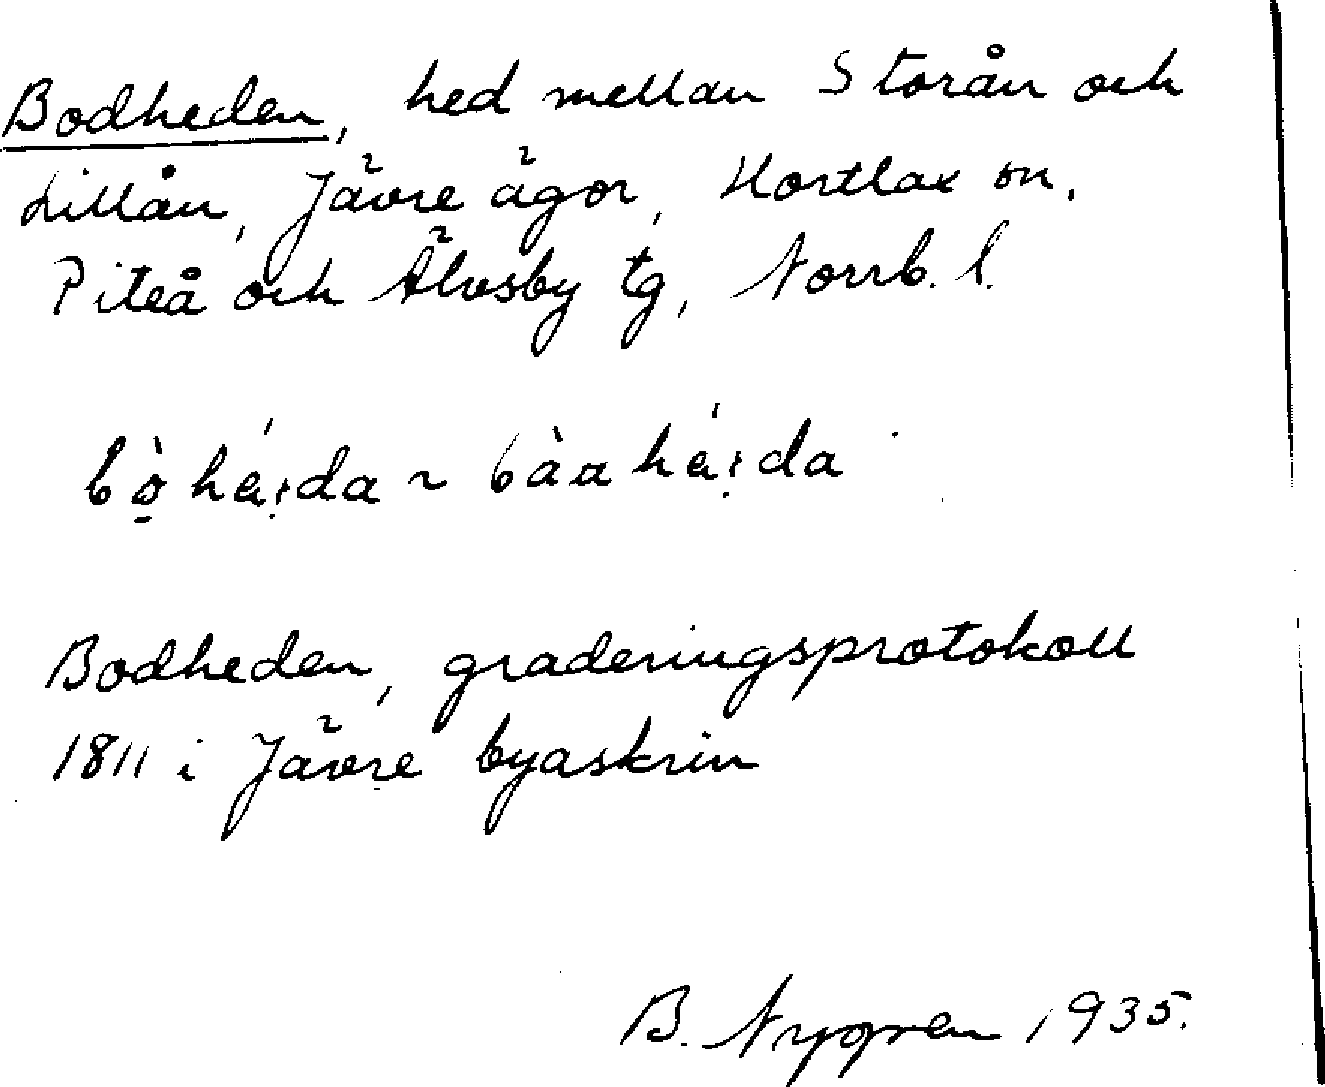 Bodheden, hed mellan Storån och
Lillån, Jävre ägor, Hortlax sn,
Piteå och Älvsby tg, Norrb. l.
Bodheden, graderingsprotokoll
1811 i Jävre byaskrin
B. Nygren 1935.